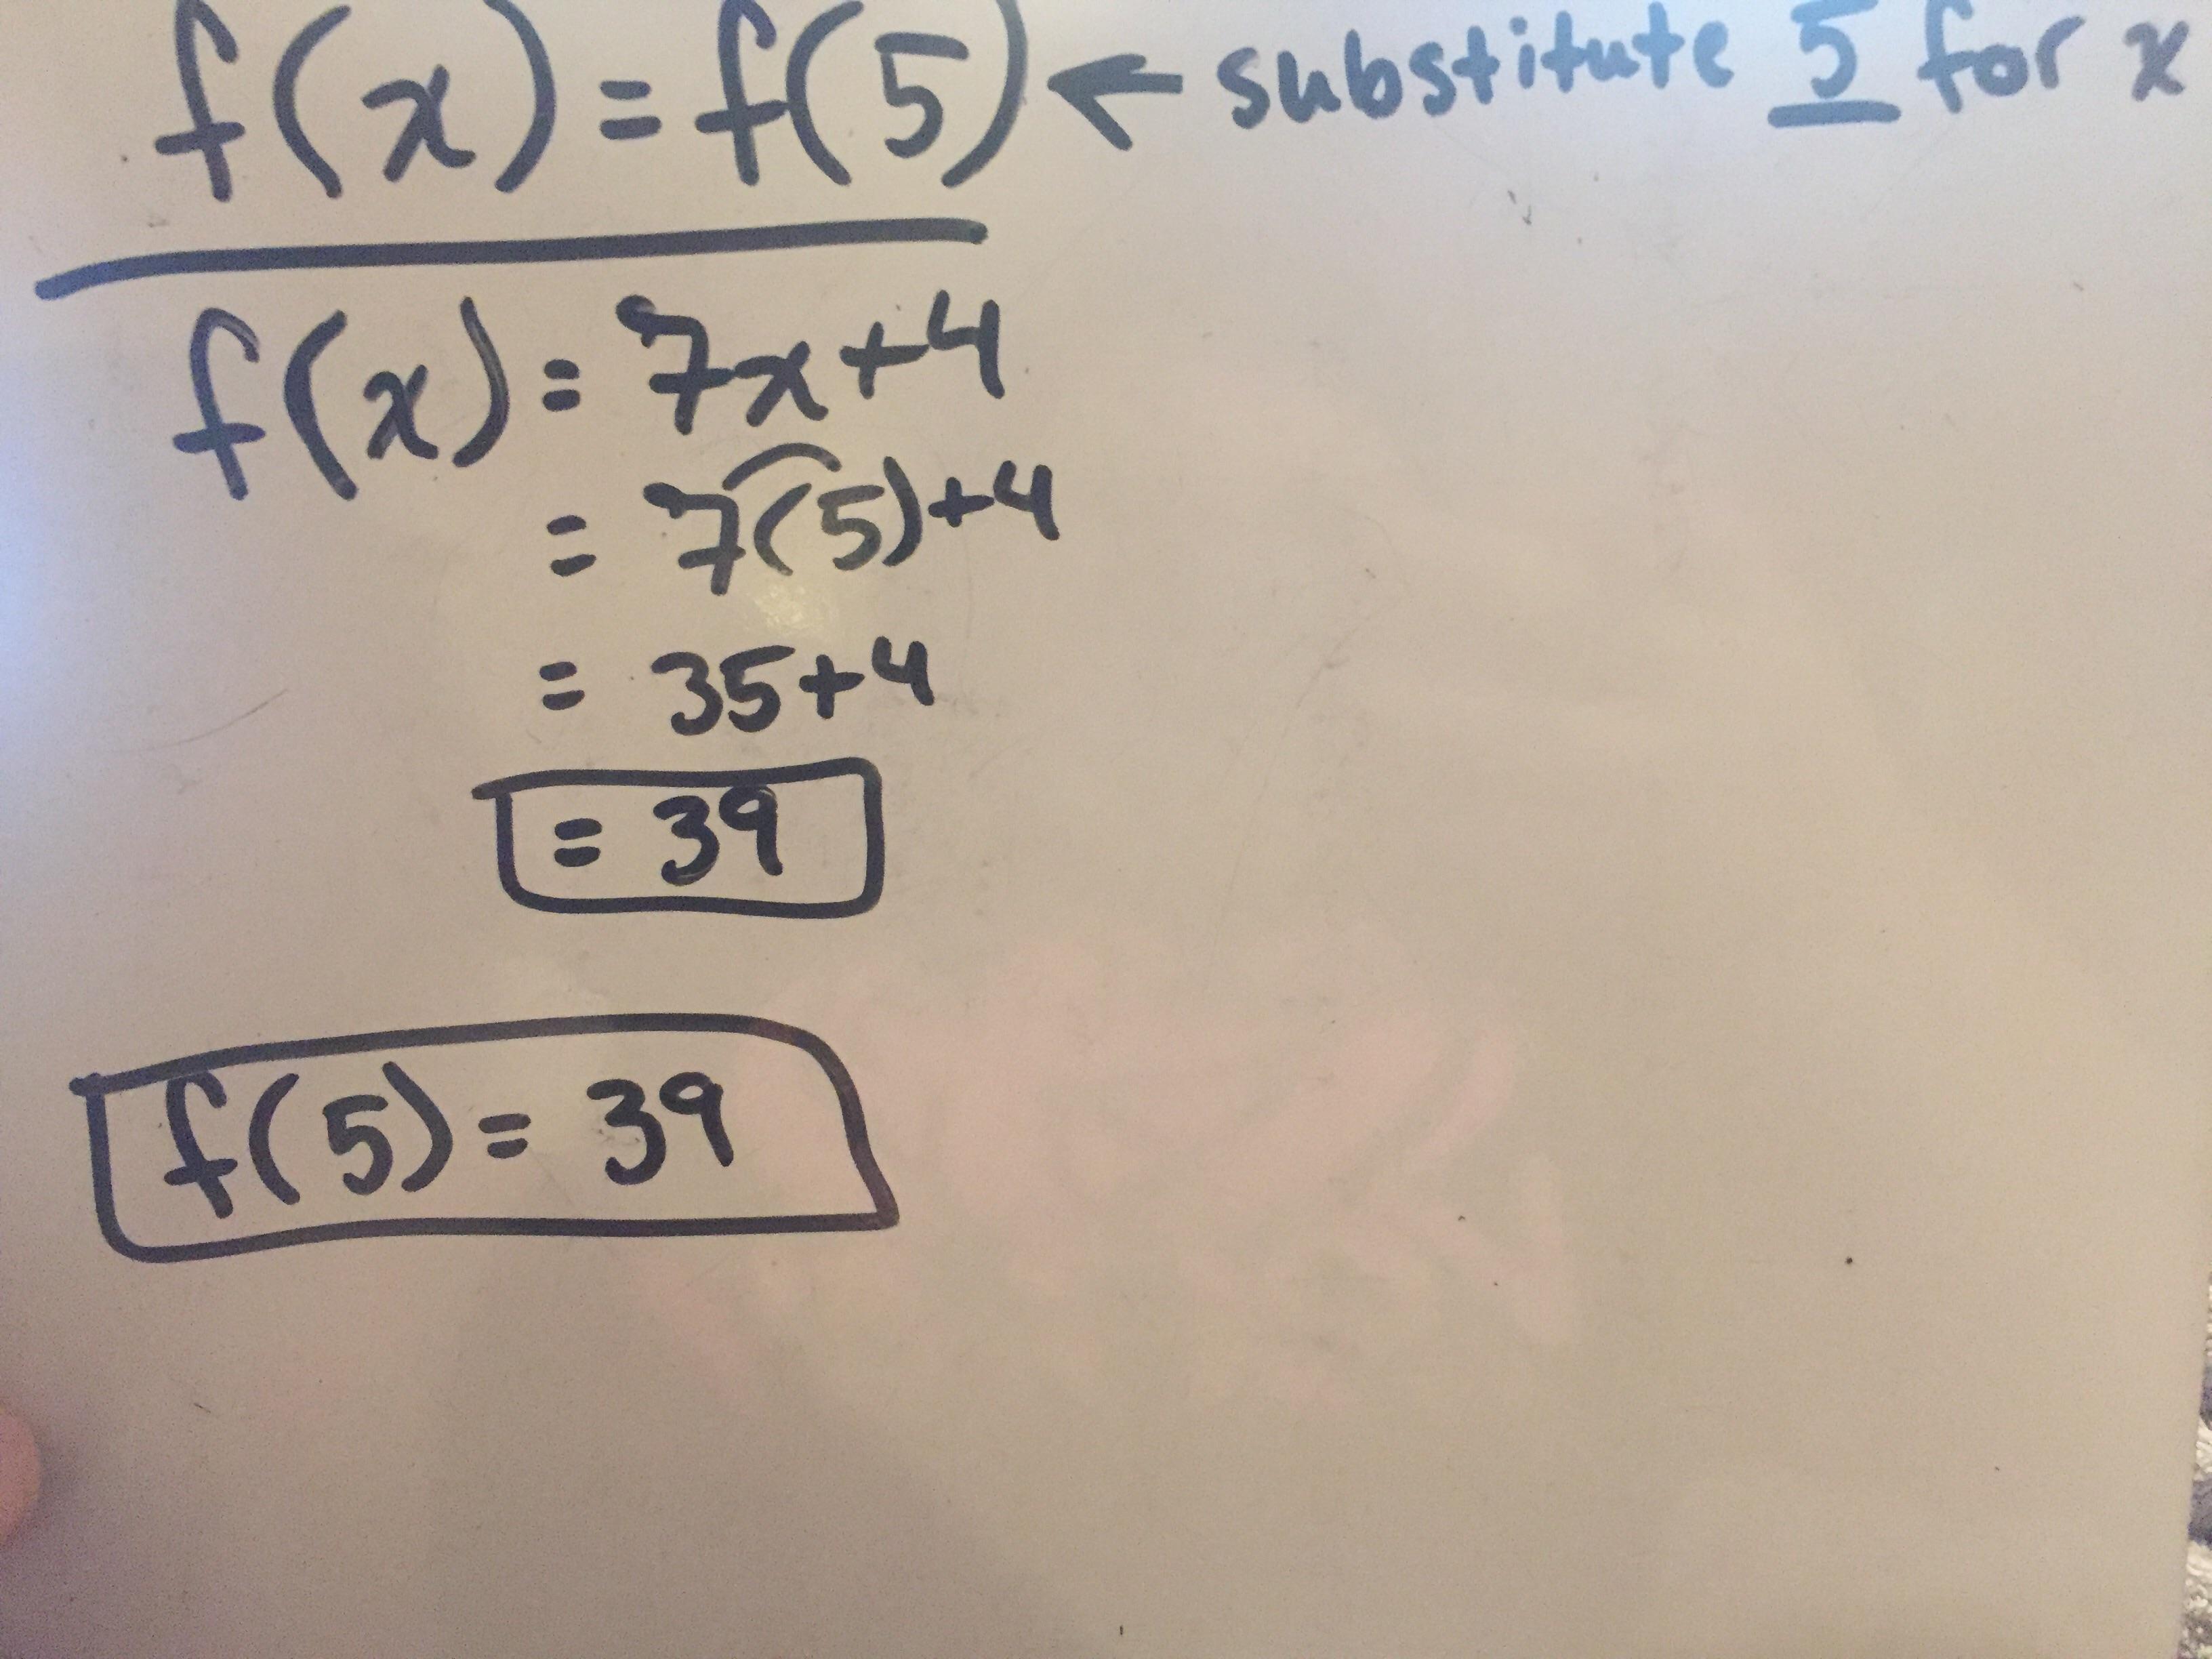 f(x) = f(5) ← substitute 5 for x
f(x) = 7x+4
= 7(5)+4
= 35+4
= 39
f(5) = 39